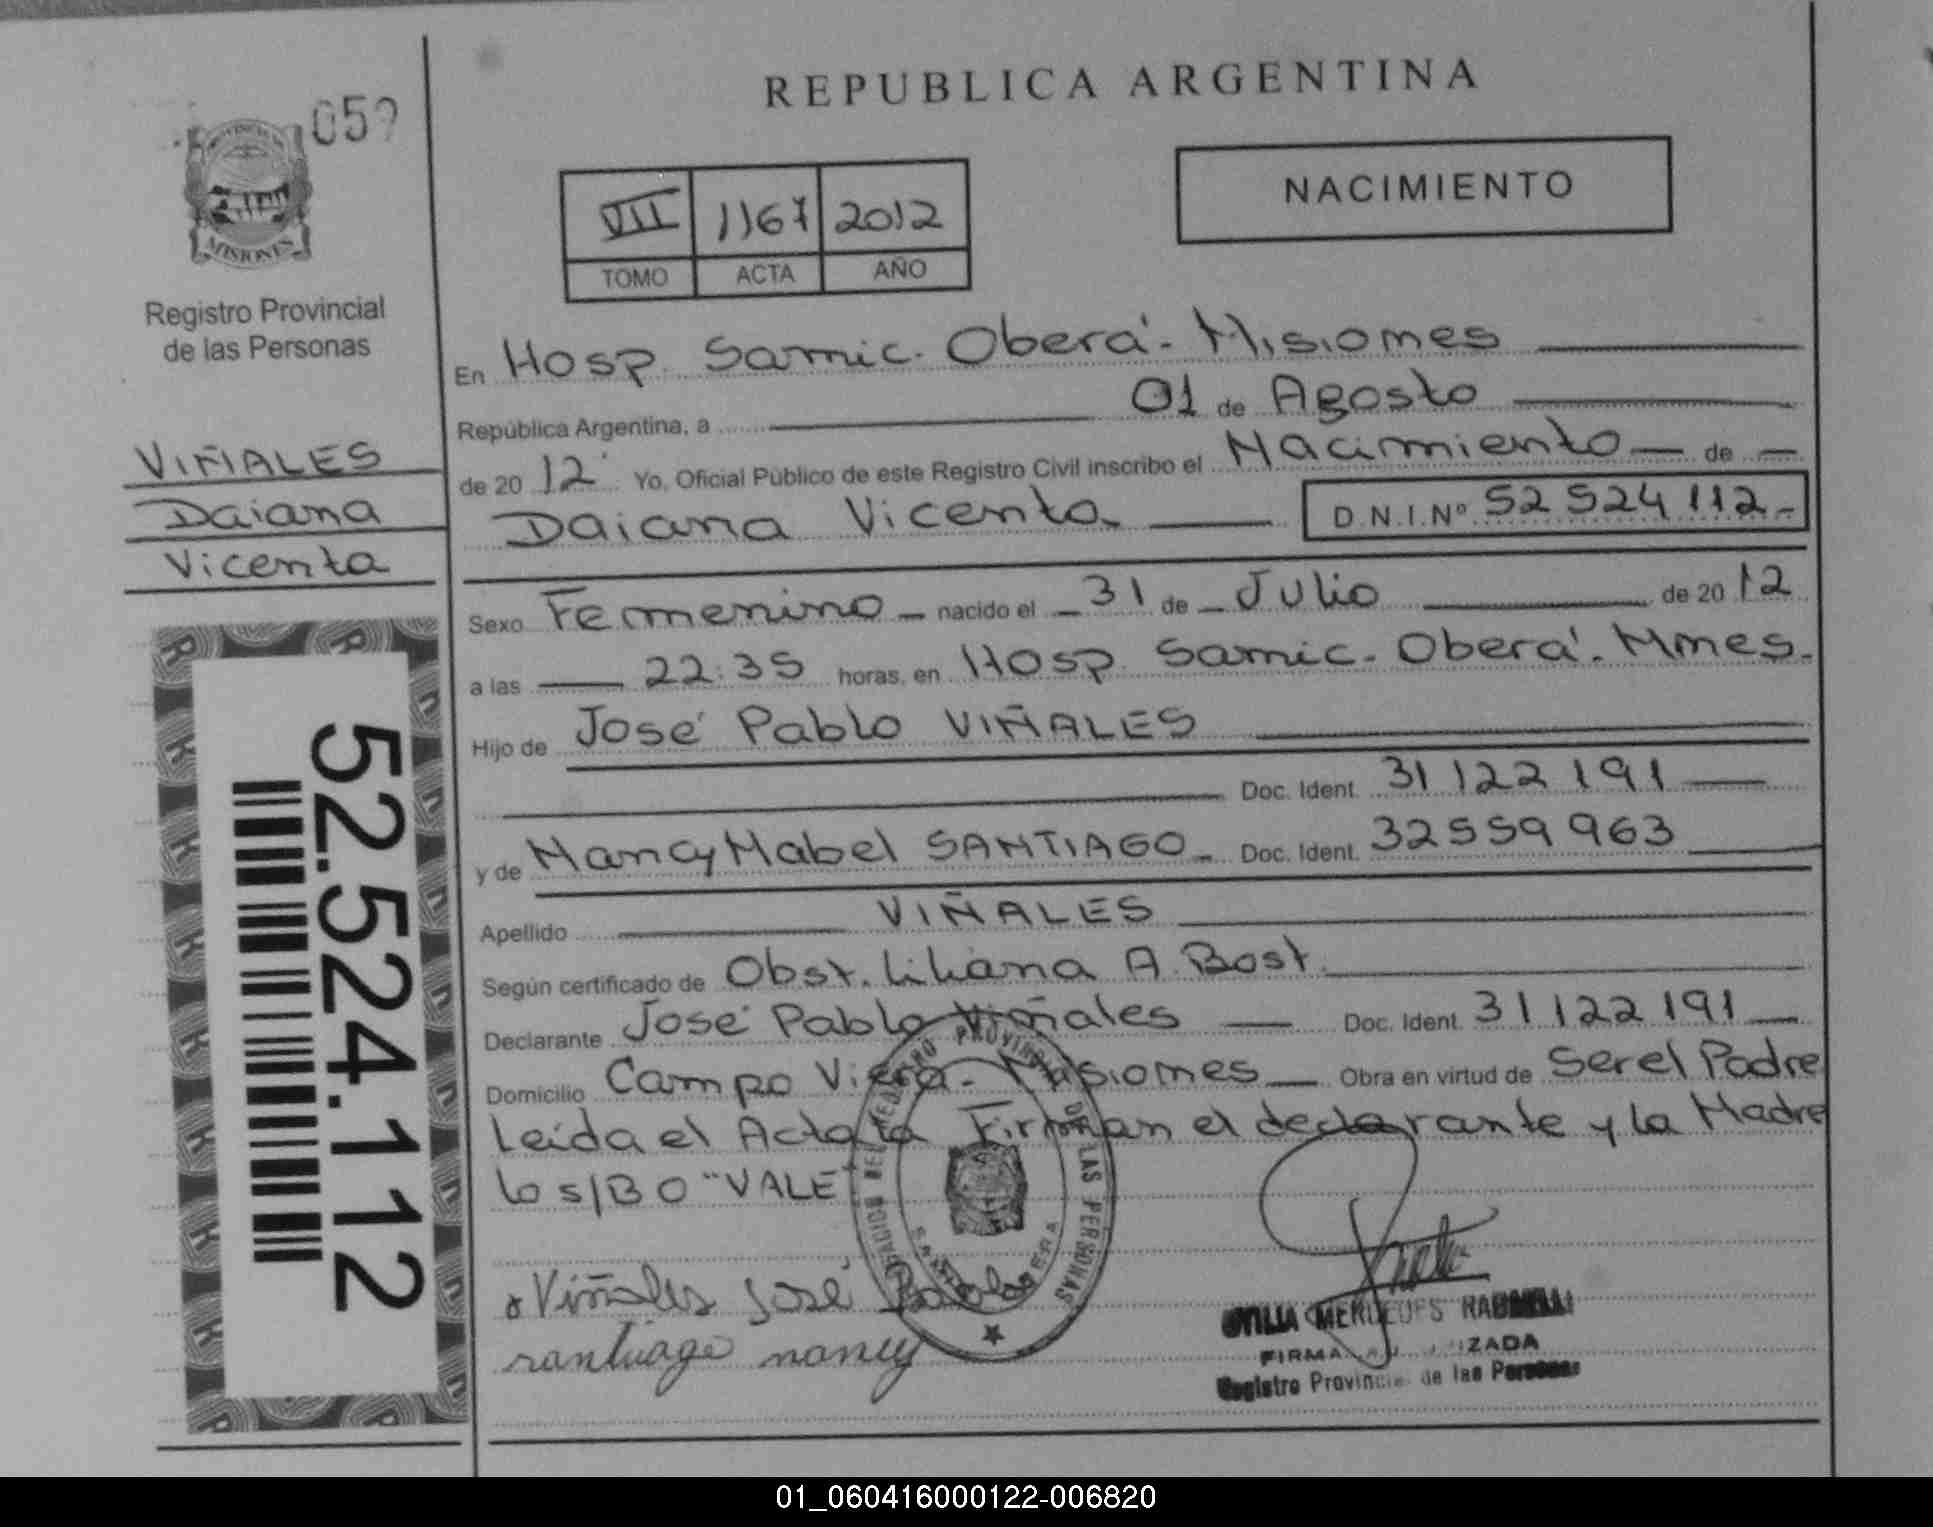 REPUBLICA ARGENTINA
059
NACIMIENTO
VII 1167 2012
TOMO ACTA AÑO
MISIONES
Registro Provincial
de las Personas
VIÑALES
Daiana
Vicenta
52.524.112
En Hosp. Samic. Oberá - Misiones
República Argentina, a 01 de Agosto
de 20 12 Yo, Oficial Público de este Registro Civil inscribo el Nacimiento de
Daiana Vicenta D.N.I.Nº 52 524 112-
Sexo Femenino nacido el 31 de Julio de 20 12
a las 22:35 horas, en Hosp. Samic. Oberá - Mnes.
Hijo de José Pablo VIÑALES
Doc. Ident. 31 122 191
y de Nancy Mabel SANTIAGO Doc. Ident. 32 559 963
Apellido VIÑALES
Según certificado de Obst. Liliana A. Bost.
Declarante José Pablo Viñales Doc. Ident. 31 122 191
Domicilio Campo Viera - Misiones Obra en virtud de Ser el Padre
Leída el Acta la Firman el declarante y la Madre
lo s/BO "VALE"
DE LAS PERSONAS
Viñales José Pablo
santiago nancy
Registro Provincial de las Personas
01_060416000122-006820